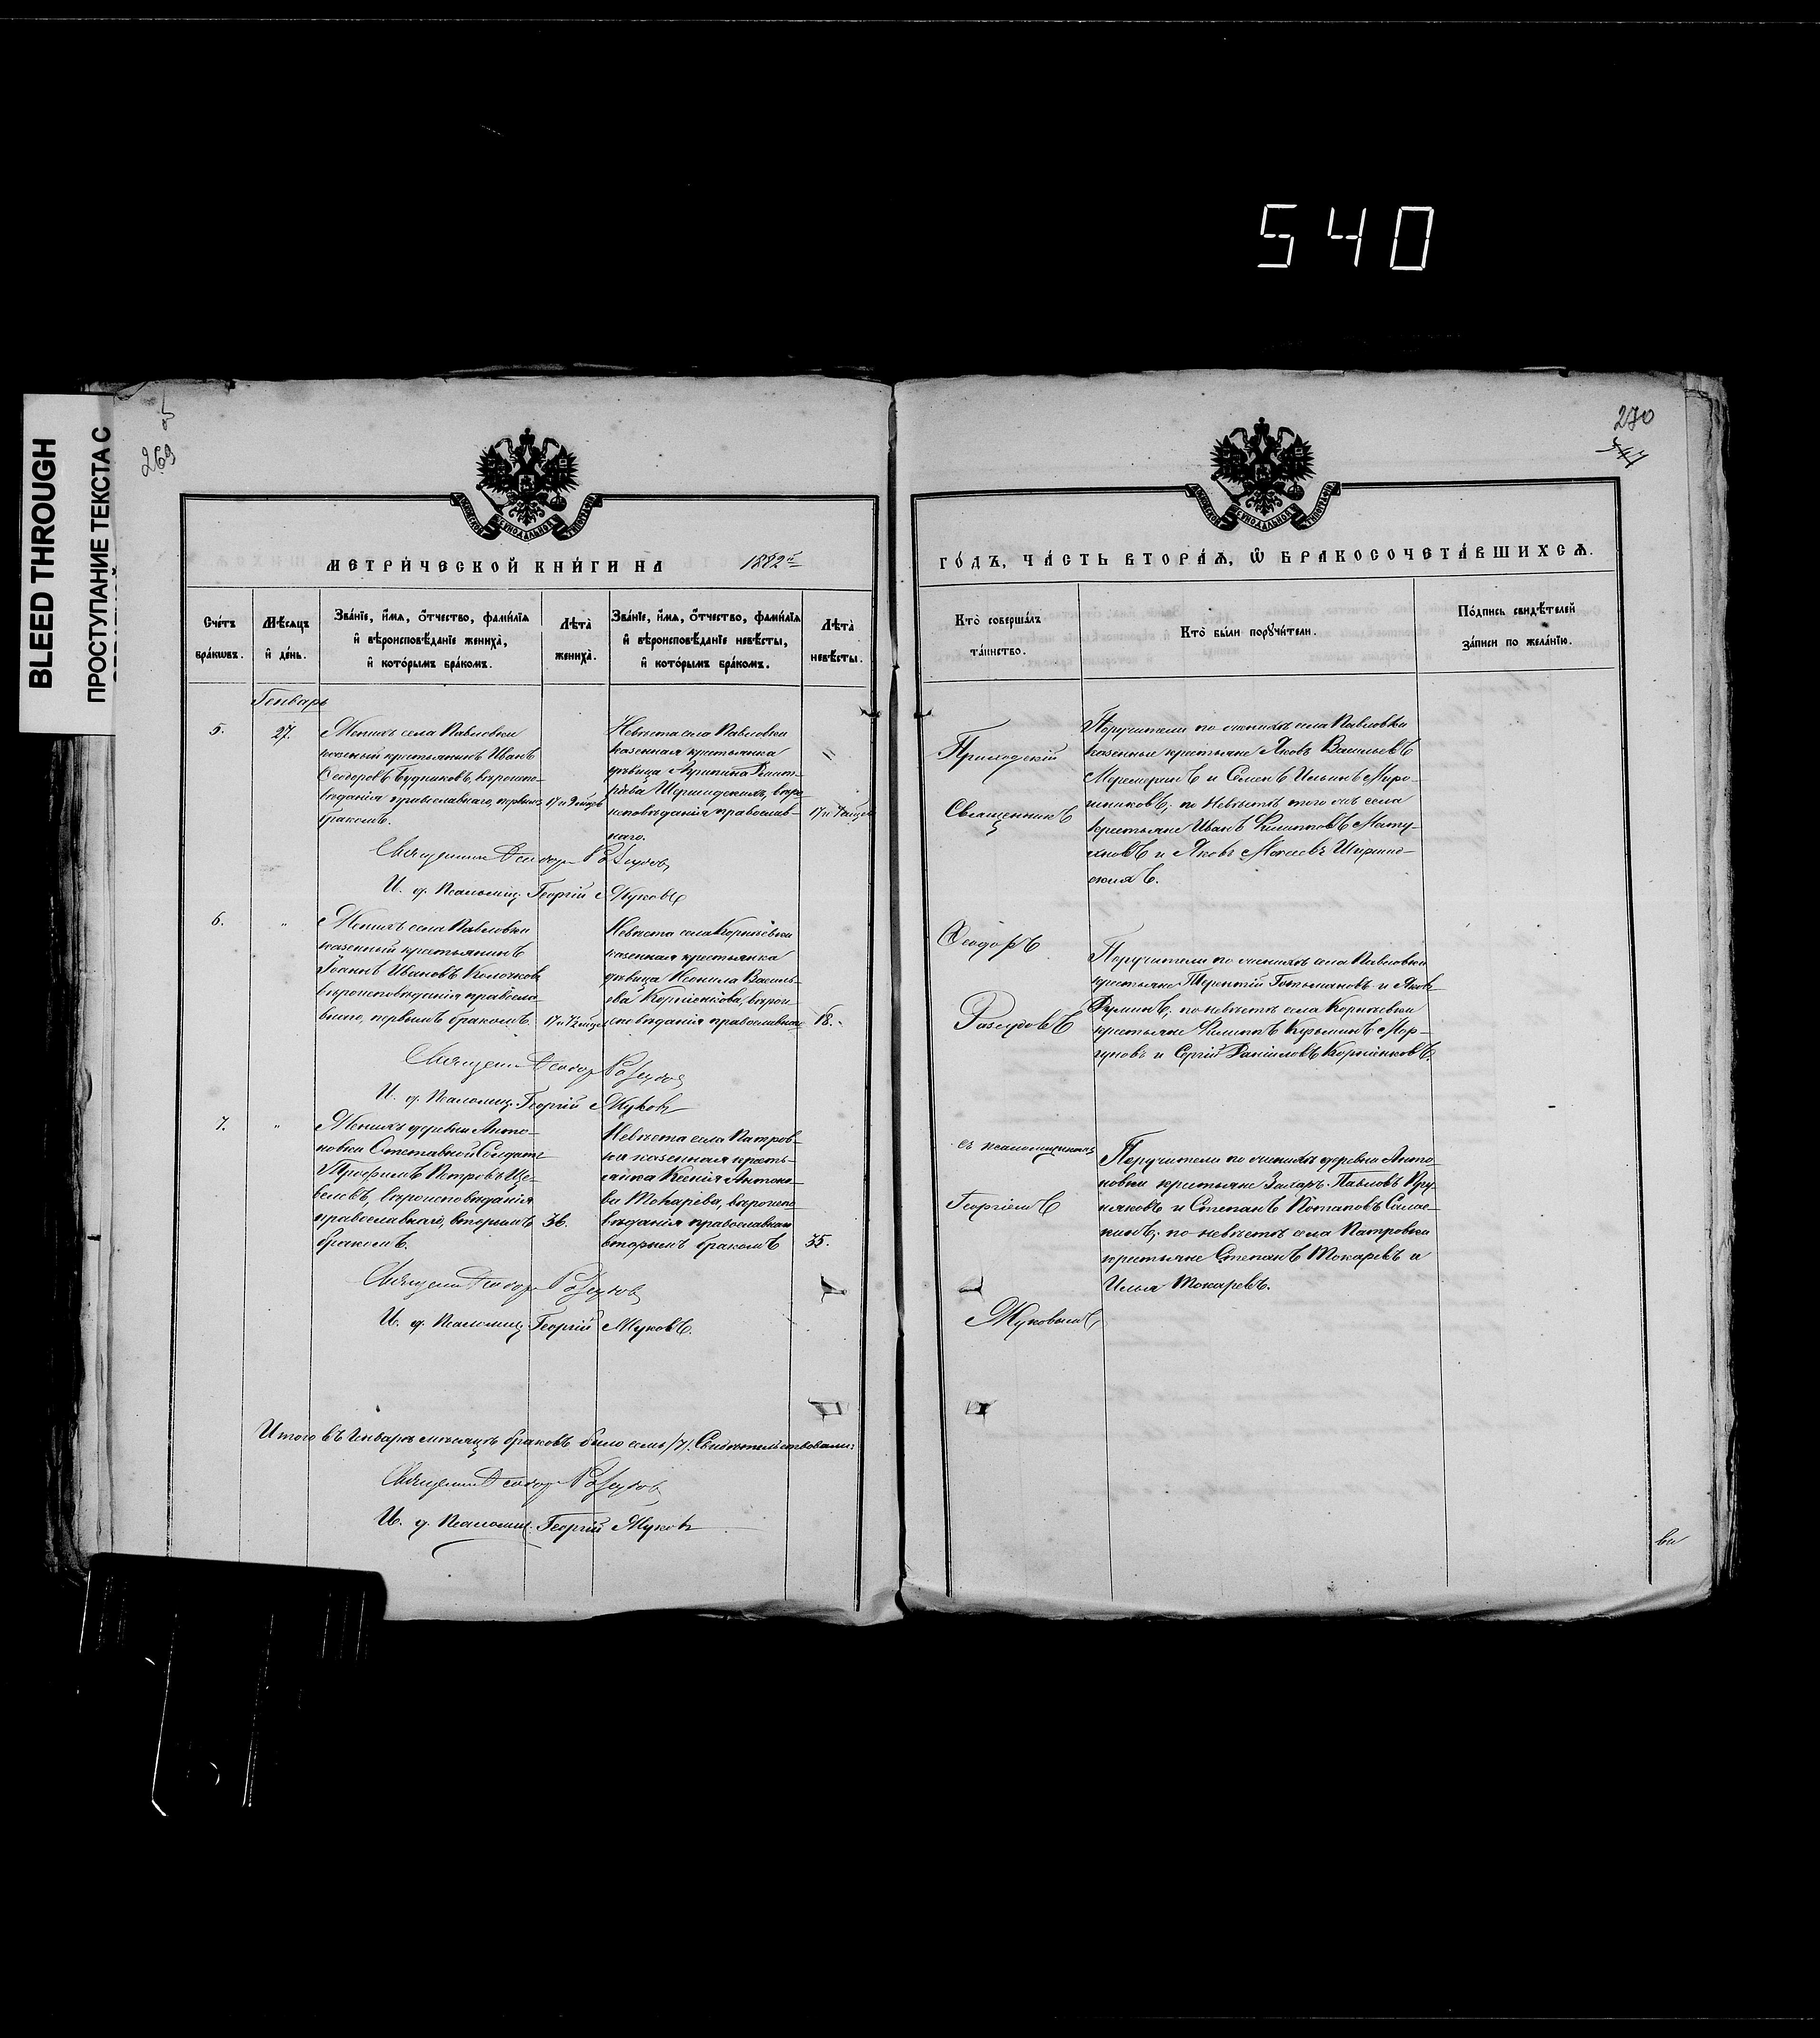 540
BLEED THROUGH
ПРОСТУПАНИЕ ТЕКСТА С
об
269
МЕТРИ́ЧЕСКОЙ КНИ́ГИ НА 1882й
Сче́тъ бра́кѡвъ.
Мѣ́сяцъ и҆ де́нь.
Зва́нїе, и҆́мѧ, ѻ҆́тчество, фами́лїѧ
и҆ вѣроисповѣ́данїе жениха̀,
и҆ кото́рымъ бра́комъ.
Лѣта̀ жениха̀.
Зва́нїе, и҆́мѧ, ѻ҆́тчество, фами́лїѧ
и҆ вѣроисповѣ́данїе невѣ́сты,
и҆ кото́рымъ бра́комъ.
Лѣта̀ невѣ́сты.
Генварь
5.
27.
Женихъ села Павловки
казеный крестьянинъ Иванъ
Ѳеодоровъ Будниковъ, вѣроиспо-
вѣданія православнаго, первымъ
бракомъ.
17 и 9 мѣсяц
Невѣста села Павловки
казенная крестьянка
дѣвица
вѣро
исповѣданія православ-
наго.
17 и
Священникъ Ѳеодоръ
И. д. Псаломщ. Георгій Жуковъ
6.
"
Женихъ села Павловки
казенный крестьянинъ
Іоаннъ Ивановъ Колочковъ
вѣроисповѣданія правосла-
внаго, первымъ бракомъ.
17 и ½ мѣсяц
Невѣста села Корнѣевки
казенная крестьянка
дѣвица Неонила Василь-
ева Корніенкова, вѣрои-
сповѣданія православнаго
18.
Священникъ Ѳеодоръ
И. д. Псаломщ. Георгій Жуковъ
7.
"
Женихъ деревни Анто-
новки Отставной Солдатъ
Трофимъ Петровъ Ще-
велевъ, вѣроисповѣданія
православнаго, вторымъ
бракомъ.
36.
Невѣста села Патров-
ки казенная кресть-
янка Ксенія Антоно-
ва Токарева, вѣроиспо-
вѣданія православнаго
вторымъ бракомъ
35.
Священникъ Ѳеодоръ
И. д. Псаломщ. Георгій Жуковъ.
Итого въ Январѣ мѣсяцѣ браковъ было семь /7/. Свидѣтельствовали:
Священникъ Ѳеодоръ
И. д. Псаломщ. Георгій Жуковъ
270
ГО́ДЪ, ЧА́СТЬ ВТОРА́Ѧ, Ѡ҆ БРАКОСОЧЕТА́ВШИХСѦ.
Кто̀ соверша́лъ
та́инство.
Кто̀ бы́ли порꙋчи́тели.
По́дпись свидѣ́телей
за́писи по жела́нїю.
Приходскій
Священникъ
Ѳеодоръ
съ псаломщикомъ
Георгіемъ
Жуковымъ
Поручители по женихѣ села Павловки
казенные крестьяне Яковъ Васильевъ
и Семенъ Ильинъ Миро-
шниковъ; по невѣстѣ того же села
крестьяне Иванъ Филипповъ Мату-
хновъ и Яковъ Моисеевъ Ширинд-
скихъ.
Поручители по женихѣ села Павловки
крестьяне Терентій и Яковъ
по невѣстѣ села Корнѣевки
крестьяне Филиппъ Кузьминъ Мор-
гуновъ и Сергій Даніиловъ Корніенковъ.
Поручители по женихѣ деревни Анто-
новки крестьяне Захаръ Павловъ Кру-
няковъ и Степанъ Потаповъ Салас-
кинъ; по невѣстѣ села Патровки
крестьяне Степанъ Токаревъ и
Илья Токаревъ.